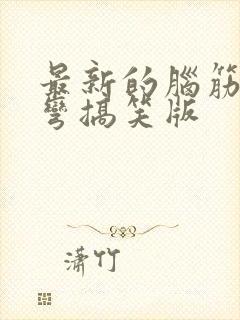 最新的腦筋
彎搞笑版
瀟竹